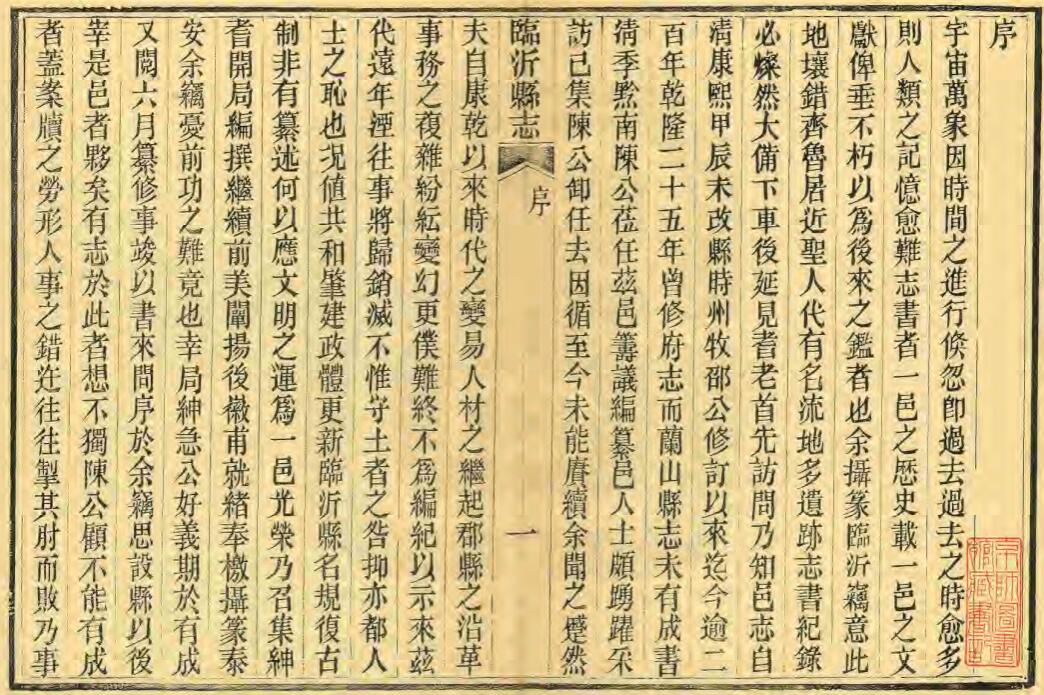 序
宇宙萬象因時間之進行倏忽卽過去過去之時愈多
則人類之記憶愈難志書者一邑之歷史載一邑之文
獻俾垂不朽以爲後來之鑑者也余攝篆臨沂竊意此
地壤錯齊魯居近聖人代有名流地多遺跡志書紀錄
必燦然大備下車後延見耆老首先訪問乃知邑志自
淸康熙甲辰未改縣時州牧邵公修訂以來迄今逾二
百年乾隆二十五年曾修府志而蘭山縣志未有成書
淸季黔南陳公莅任茲邑籌議編纂邑人士頗踴躍采
訪已集陳公卸任去因循至今未能賡續余聞之蹙然
臨沂縣志
序
一
夫自康乾以來時代之變易人材之繼起郡縣之沿革
事務之複雜紛紜變幻更僕難終不爲編紀以示來茲
代遠年湮往事將歸銷滅不惟守土者之咎抑亦都人
士之恥也況値共和肇建政體更新臨沂縣名規復古
制非有纂述何以應文明之運爲一邑光榮乃召集紳
耆開局編撰繼續前美闡揚後徽甫就緒奉檄攝篆泰
安余竊憂前功之難竟也幸局紳急公好義期於有成
又閱六月纂修事竣以書來問序於余竊思設縣以後
宰是邑者夥矣有志於此者想不獨陳公顧不能有成
者蓋案牘之勞形人事之錯迕往往掣其肘而敗乃事